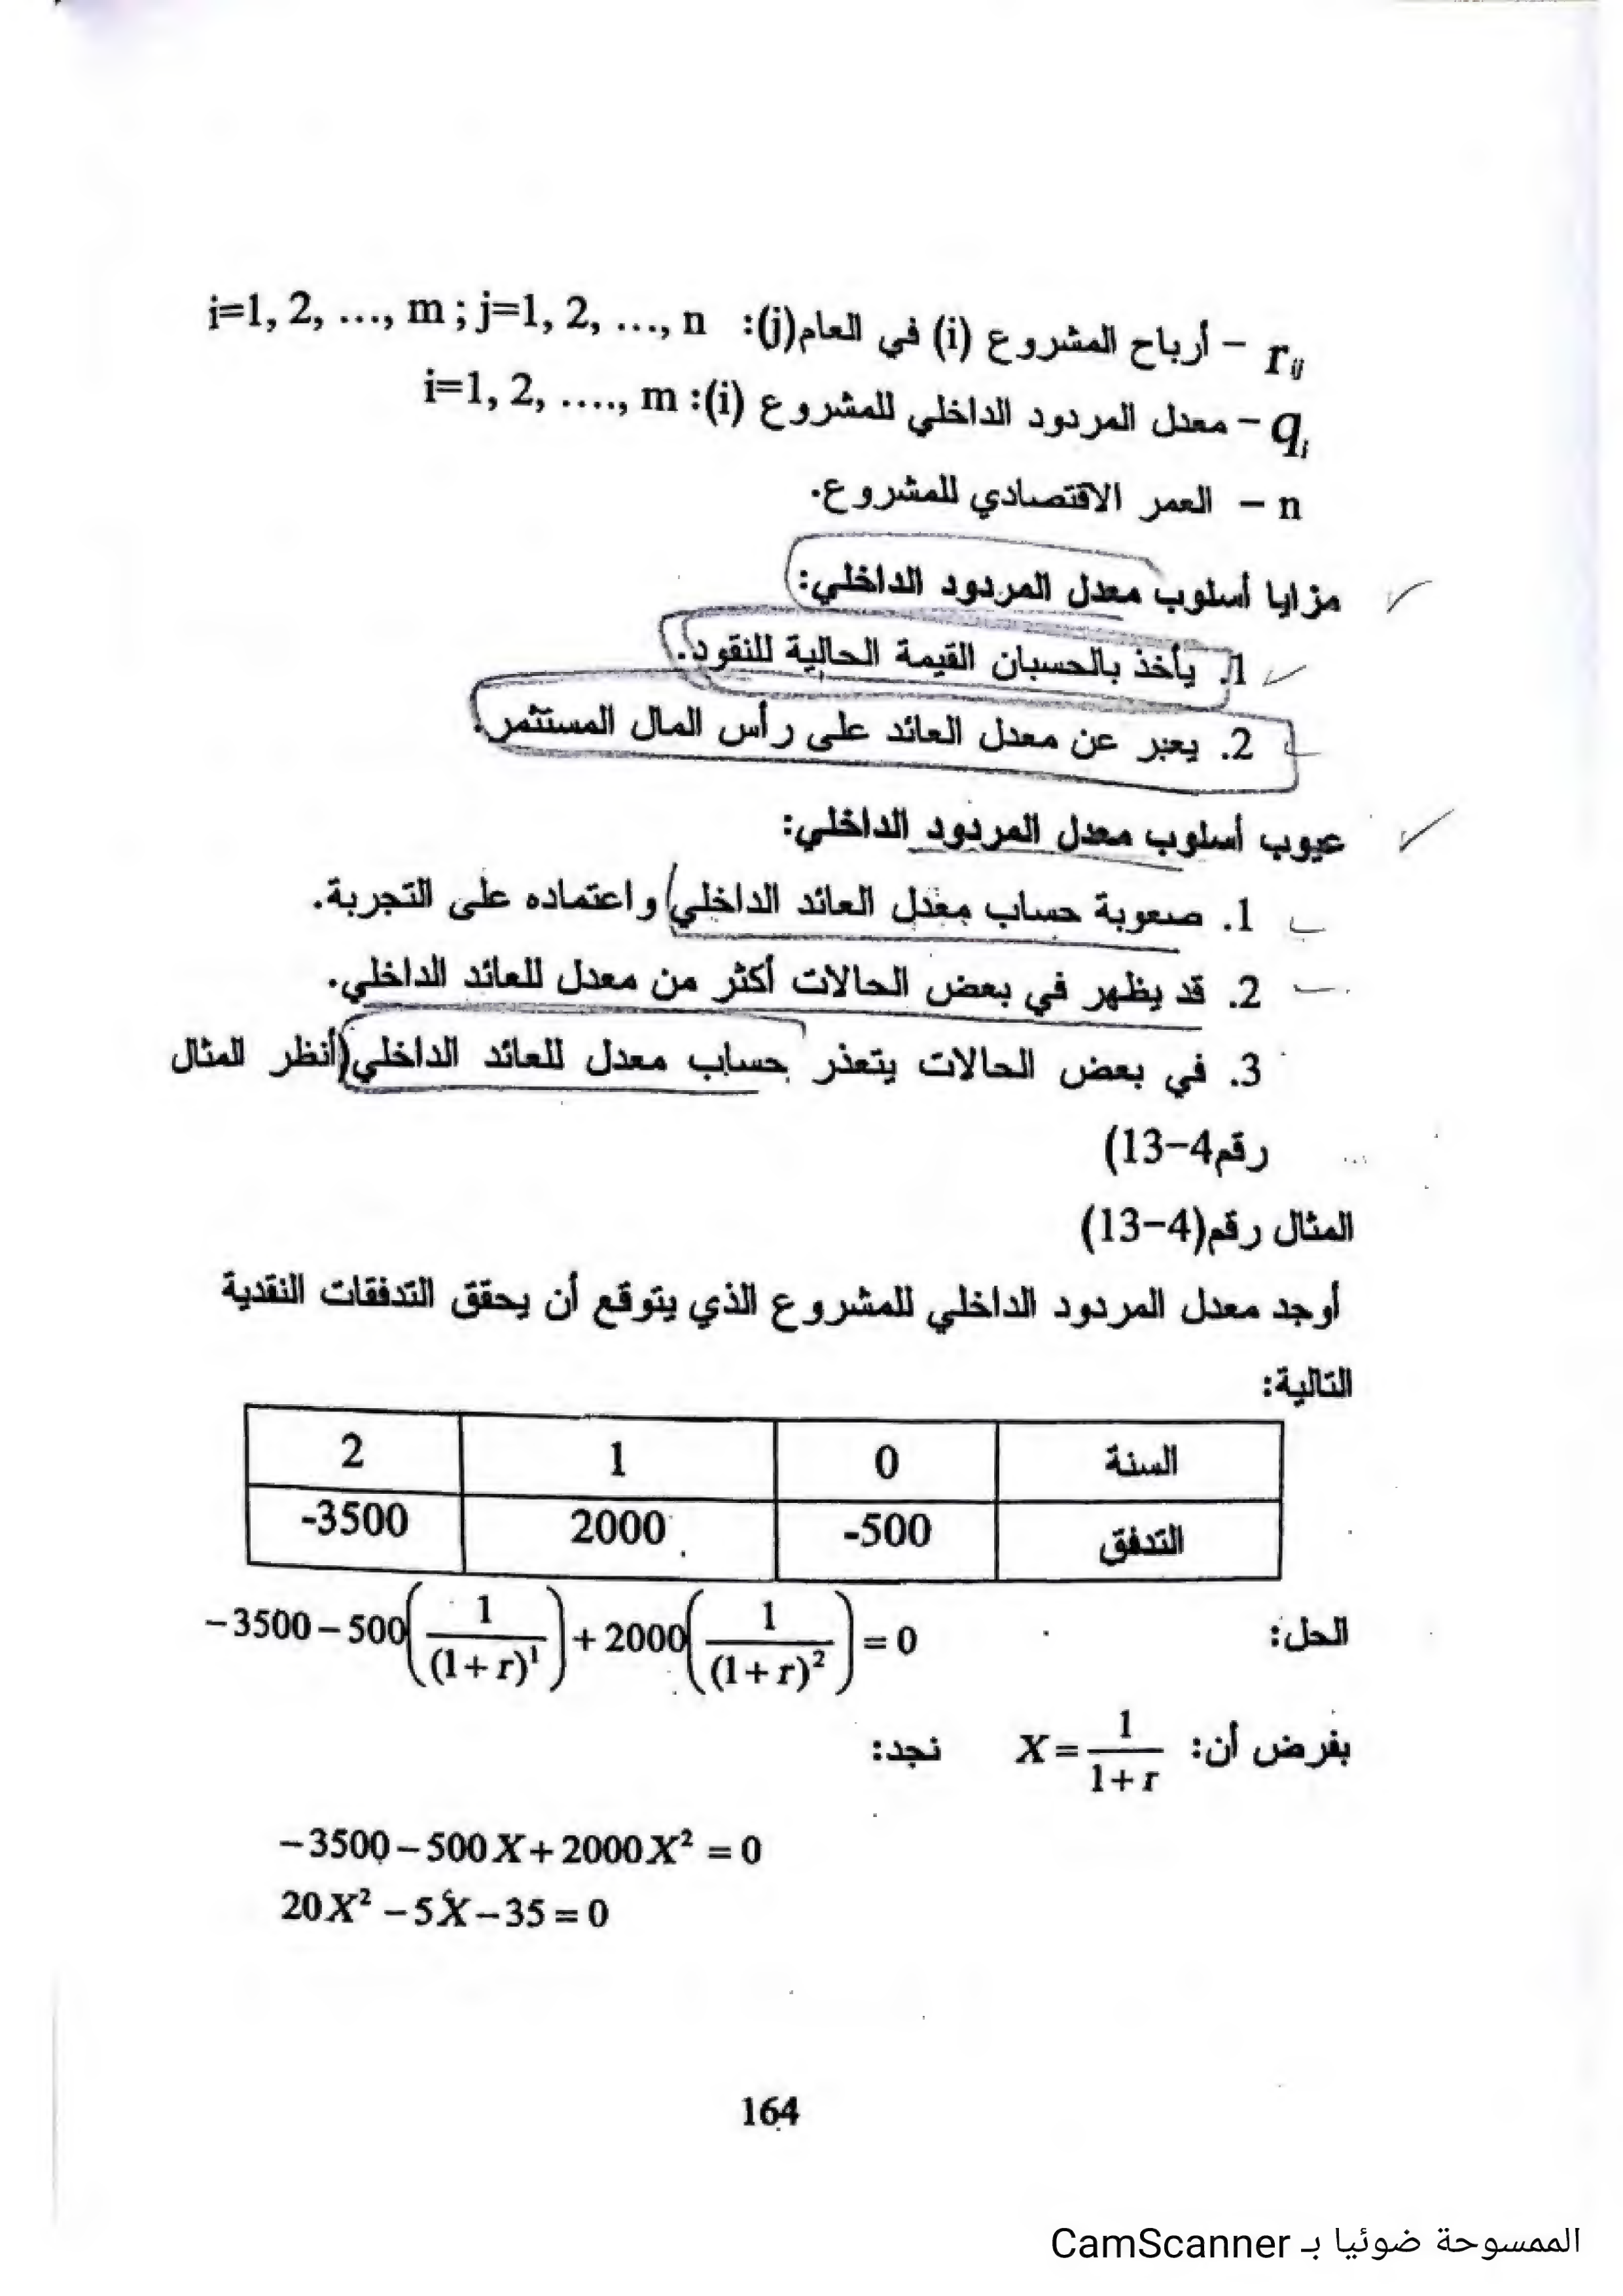 r_ij – أرباح المشروع (i) في العام(j): i=1, 2, …, m ; j=1, 2, …, n
q_i – معدل المردود الداخلي للمشروع (i): i=1, 2, …., m
n – العمر الاقتصادي للمشروع.
مزايا أسلوب معدل المردود الداخلي:
1. يأخذ بالحسبان القيمة الحالية للنقود.
2. يعبر عن معدل العائد على رأس المال المستثمر.
عيوب أسلوب معدل المردود الداخلي:
1. صعوبة حساب معدل العائد الداخلي واعتماده على التجربة.
2. قد يظهر في بعض الحالات أكثر من معدل للعائد الداخلي.
3. في بعض الحالات يتعذر حساب معدل للعائد الداخلي(أنظر المثال
رقم4–13)
المثال رقم(4–13)
أوجد معدل المردود الداخلي للمشروع الذي يتوقع أن يحقق التدفقات النقدية
التالية:
السنة 0 1 2
التدفق -500 2000 -3500
الحل: −3500−500(1/(1+r)^1)+2000(1/(1+r)^2)=0
بفرض أن: X=1/(1+r) نجد:
−3500−500X+2000X²=0
20X²−5X−35=0
164
الممسوحة ضوئيا بـ CamScanner